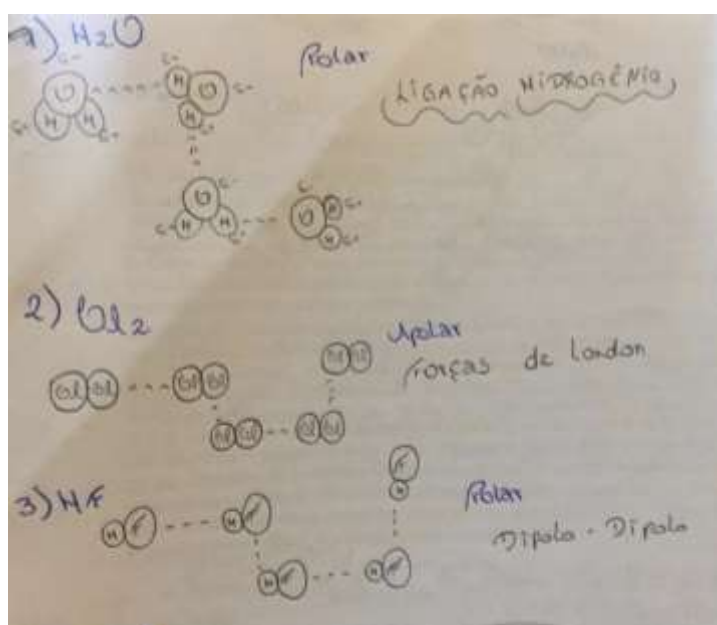 1) H2O
Polar
LIGAÇÃO HIDROGÊNIO
δ- δ- δ-
O H O
H H H
δ+ δ+ δ+
δ- δ-
O O H δ+
δ+ H H H δ+
δ+
2) Cl2
Apolar
Forças de London
Cl Cl Cl Cl Cl Cl
Cl Cl Cl Cl
3) HF
Polar
Dipolo - Dipolo
H F H F F
H
H F H F